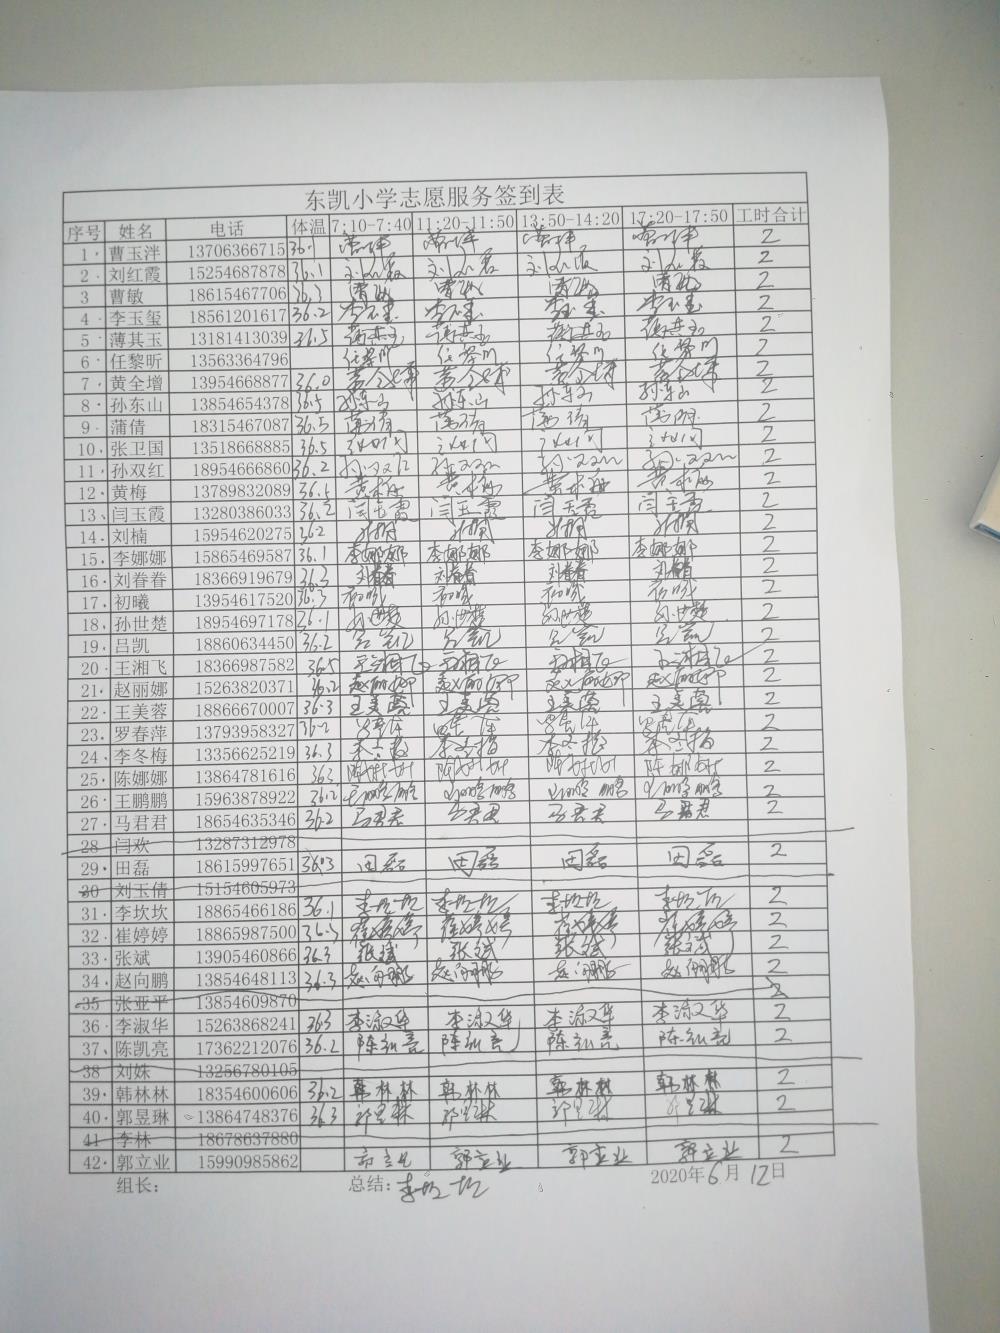 东凯小学志愿服务签到表
序号 姓名 电话 体温 7:10-7:40 11:20-11:50 13:50-14:20 17:20-17:50 工时合计
1 曹玉泮 13706366715 36.1 2
2 刘红霞 15254687878 36.1 2
3 曹敏 18615467706 36.3 曹敏 曹敏 曹敏 曹敏 2
4 李玉玺 18561201617 36.2 李玉玺 李玉玺 李玉玺 李玉玺 2
5 薄其玉 13181413039 36.5 薄其玉 薄其玉 薄其玉 薄其玉 2
6 任黎昕 13563364796 2
7 黄全增 13954668877 36.0 黄全增 黄全增 黄全增 黄全增 2
8 孙东山 13854654378 36.5 孙东山 孙东山 孙东山 孙东山 2
9 蒲倩 18315467087 36.5 蒲倩 蒲倩 蒲倩 蒲倩 2
10 张卫国 13518668885 36.5 2
11 孙双红 18954666860 36.2 孙双红 孙双红 孙双红 孙双红 2
12 黄梅 13789832089 36.5 2
13 闫玉霞 13280386033 36.2 闫玉霞 闫玉霞 闫玉霞 闫玉霞 2
14 刘楠 15954620275 36.2 刘楠 刘楠 刘楠 刘楠 2
15 李娜娜 15865469587 36.1 李娜娜 李娜娜 李娜娜 李娜娜 2
16 刘眷眷 18366919679 36.3 刘眷眷 刘眷眷 刘眷眷 刘眷眷 2
17 初曦 13954617520 36.3 初曦 初曦 初曦 初曦 2
18 孙世楚 18954697178 36.1 孙世楚 孙世楚 孙世楚 孙世楚 2
19 吕凯 18860634450 36.2 吕凯 吕凯 吕凯 吕凯 2
20 王湘飞 18366987582 36.5 王湘飞 王湘飞 王湘飞 王湘飞 2
21 赵丽娜 15263820371 36.2 赵丽娜 赵丽娜 赵丽娜 赵丽娜 2
22 王美蓉 18866670007 36.3 王美蓉 王美蓉 王美蓉 王美蓉 2
23 罗春萍 13793958327 36.2 罗春萍 罗春萍 罗春萍 罗春萍 2
24 李冬梅 13356625219 36.3 李冬梅 李冬梅 李冬梅 李冬梅 2
25 陈娜娜 13864781616 363 陈娜娜 陈娜娜 陈娜娜 陈娜娜 2
26 王鹏鹏 15963878922 36.2 王鹏鹏 王鹏鹏 王鹏鹏 王鹏鹏 2
27 马君君 18654635346 36.2 马君君 马君君 马君君 马君君 2
28 闫欢 13287312978
29 田磊 18615997651 36.3 田磊 田磊 田磊 田磊 2
30 刘玉倩 15154605973
31 李坎坎 18865466186 36.1 李坎坎 李坎坎 李坎坎 李坎坎 2
32 崔婷婷 18865987500 36.3 崔婷婷 崔婷婷 崔婷婷 崔婷婷 2
33 张斌 13905460866 36.3 张斌 张斌 张斌 张斌 2
34 赵向鹏 13854648113 36.3 赵向鹏 赵向鹏 赵向鹏 赵向鹏 2
35 张亚平 13854609870 2
36 李淑华 15263868241 363 李淑华 李淑华 李淑华 李淑华 2
37 陈凯亮 17362212076 36.2 陈凯亮 陈凯亮 陈凯亮 陈凯亮 2
38 刘姝 13256780105
39 韩林林 18354600606 36.2 韩林林 韩林林 韩林林 韩林林 2
40 郭昱琳 13864748376 36.3 郭昱琳 郭昱琳 郭昱琳 郭昱琳 2
41 李林 18678637880
42 郭立业 15990985862 郭立业 郭立业 郭立业 郭立业 2
组长： 总结：李坎坎 2020年6月12日